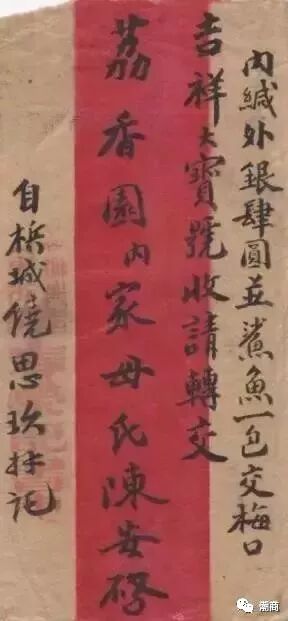 內緘外銀肆圓並鯊魚一包交梅口
吉祥大寶號收請轉交
荔香園內家母氏陳安
自梹城饒思玖抖記
潮商